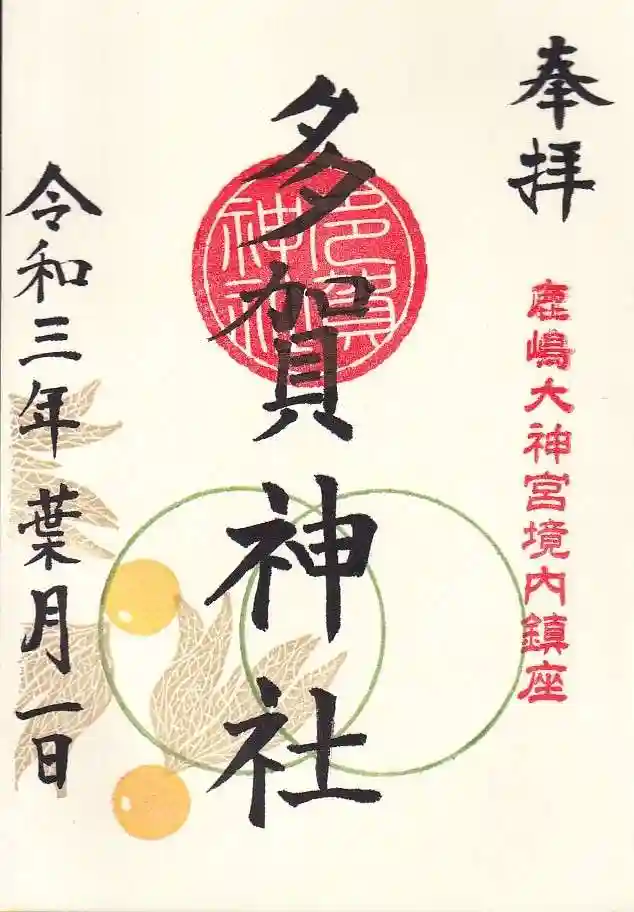 奉拝
鹿嶋大神宮境内鎮座
多賀神社
多賀神社
令和三年葉月一日